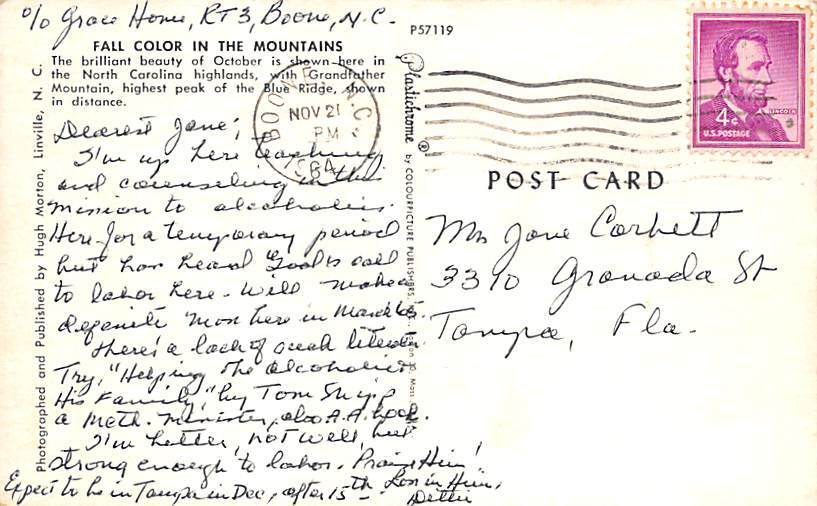 c/o Grace Home, RT 3, Boone, N.C.
P57119
FALL COLOR IN THE MOUNTAINS
The brilliant beauty of October is shown here in
the North Carolina highlands, with Grandfather
Mountain, highest peak of the Blue Ridge, shown
in distance.
Dearest Jane,
I'm up here teaching
and counseling in this
mission to alcoholics.
Here for a temporary period
but has heard God's call
to labor here. Will make
definite move here in March
There's a lack of such litera-
Try, "Helping the alcoholic
His Family," by Tom
a Meth. Minister, also A.A. book.
I'm better, not well, but
strong enough to labor. Praise Him!
Expect to be in Tampa in Dec, after 15th - Love in Him,
Photographed and Published by Hugh Morton, Linville, N. C.
Plastichrome ® by COLOURPICTURE PUBLISHERS,
BOONE N.C.
NOV 21
PM
1964
4¢
LINCOLN
U.S. POSTAGE
POST CARD
Jane Corbett
3310 Granada St
Tampa, Fla.